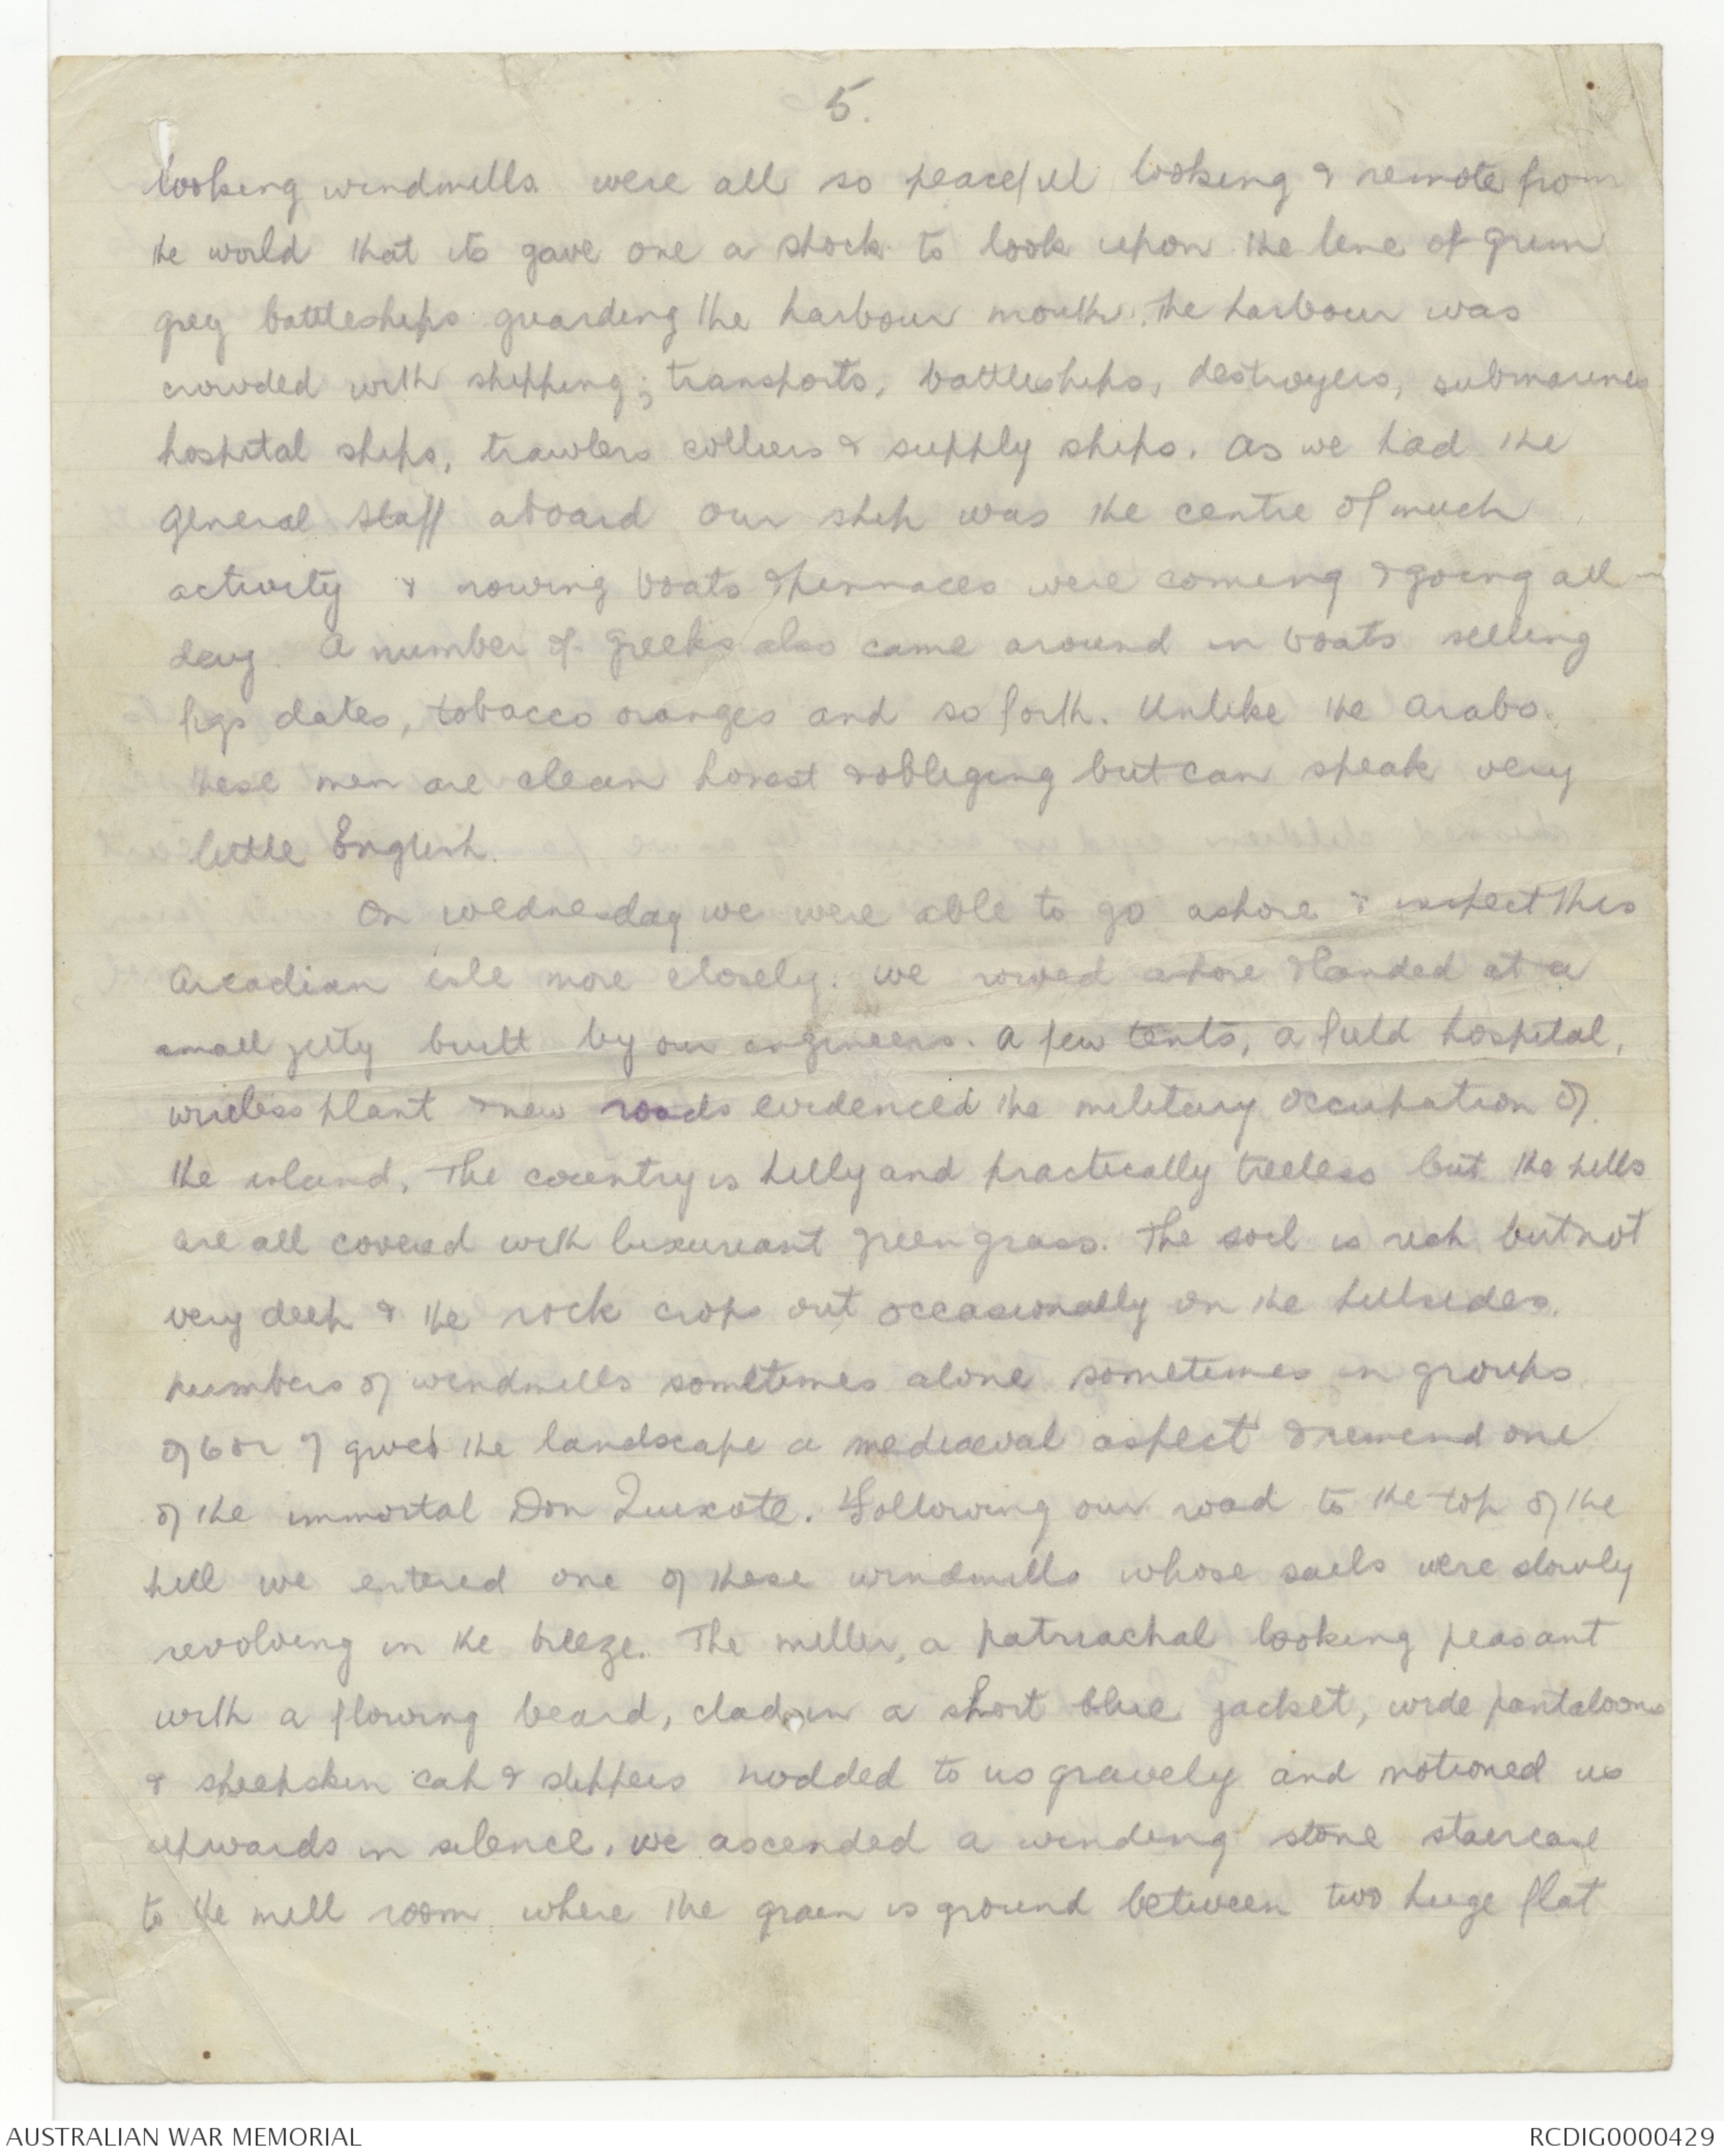 5.
looking windmills were all so peaceful looking & remote from
the world that its gave one a shock to look upon the line of grim
grey battleships guarding the harbour mouth. The harbour was
crowded with shipping; transports, battleships, destroyers, submarines
hospital ships, trawlers colliers & supply ships. As we had the
General Staff aboard our ship was the centre of much
activity & rowing boats & pinnaces were coming & going all
day. A number of Greeks also came around in boats selling
figs dates, tobacco oranges and so forth. Unlike the Arabs
these men are clean honest & obliging but can speak very
little English.
On Wednesday we were able to go ashore & inspect this
Arcadian isle more closely. We rowed ashore & landed at a
small jetty built by our engineers. A few tents, a field hospital,
wireless plant & new roads evidenced the military occupation of
the island. The country is hilly and practically treeless but the hills
are all covered with luxureant green grass. The soil is rich but not
very deep & the rock crops out occasionally on the hillsides.
Numbers of windmills sometimes alone sometimes in groups
of 6 or 7 gives the landscape a mediaeval aspect & remind one
of the immortal Don Quixote. Following our road to the top of the
hill we entered one of these windmills whose sails were slowly
revolving in the breeze. The miller, a patriachal looking peasant
with a flowing beard, clad in a short blue jacket, wide pantaloons
& sheepskin cap & slippers nodded to us gravely and motioned us
upwards in silence. We ascended a winding stone staircase
to the mill room where the grain is ground between two huge flat
AUSTRALIAN WAR MEMORIAL
RCDIG0000429